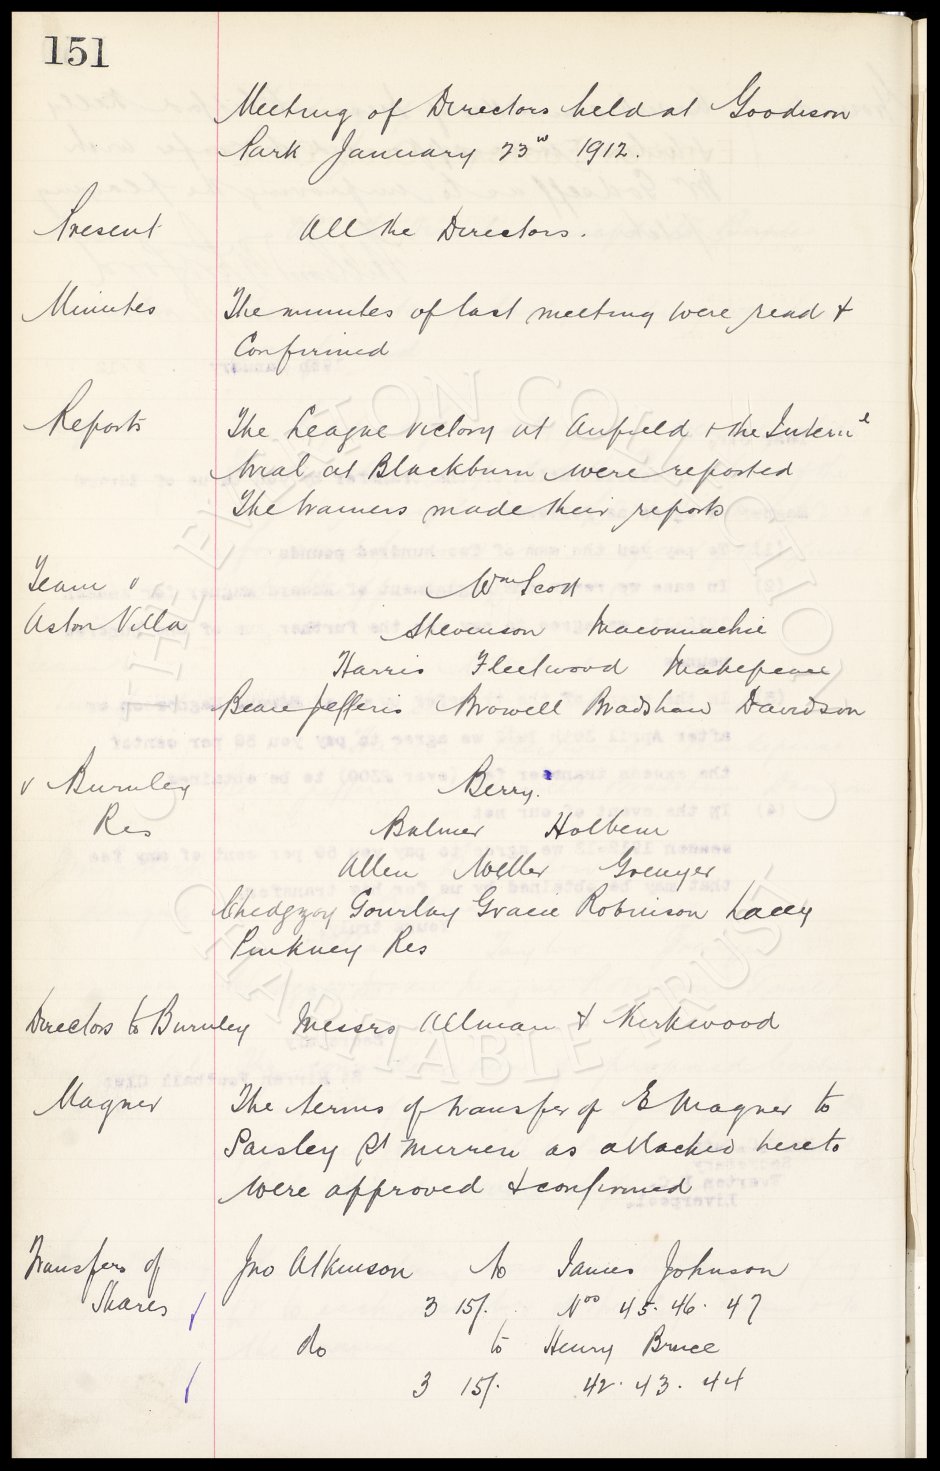 151
Meeting of Directors held at Goodison
Park January 23rd 1912.
Present All the Directors.
Minutes The minutes of last meeting were read &
Confirmed
Reports The League victory at Anfield & the Intern'l
trial at Blackburn were reported
The trainers made their reports
Team v Wm Scott
Aston Villa Stevenson Maconnachie
Harris Fleetwood Makepeace
Beare Jefferis Browell Bradshaw Davidson
v Burnley Berry.
Res Balmer Holbem
Allen Weller Grenyer
Chedgzoy Gourlay Gracie Robinson Lacey
Pinkney Res
Directors to Burnley Messrs Allman & Kirkwood
Magner The terms of transfer of E Magner to
Paisley St Mirren as attached hereto
were approved & confirmed
Transfers of Jno Atkinson to James Johnson
Shares 3 15/. Nos 45. 46. 47
do to Henry Bruce
3 15/. 42. 43. 44
THE EVERTON COLLECTION
CHARITABLE TRUST